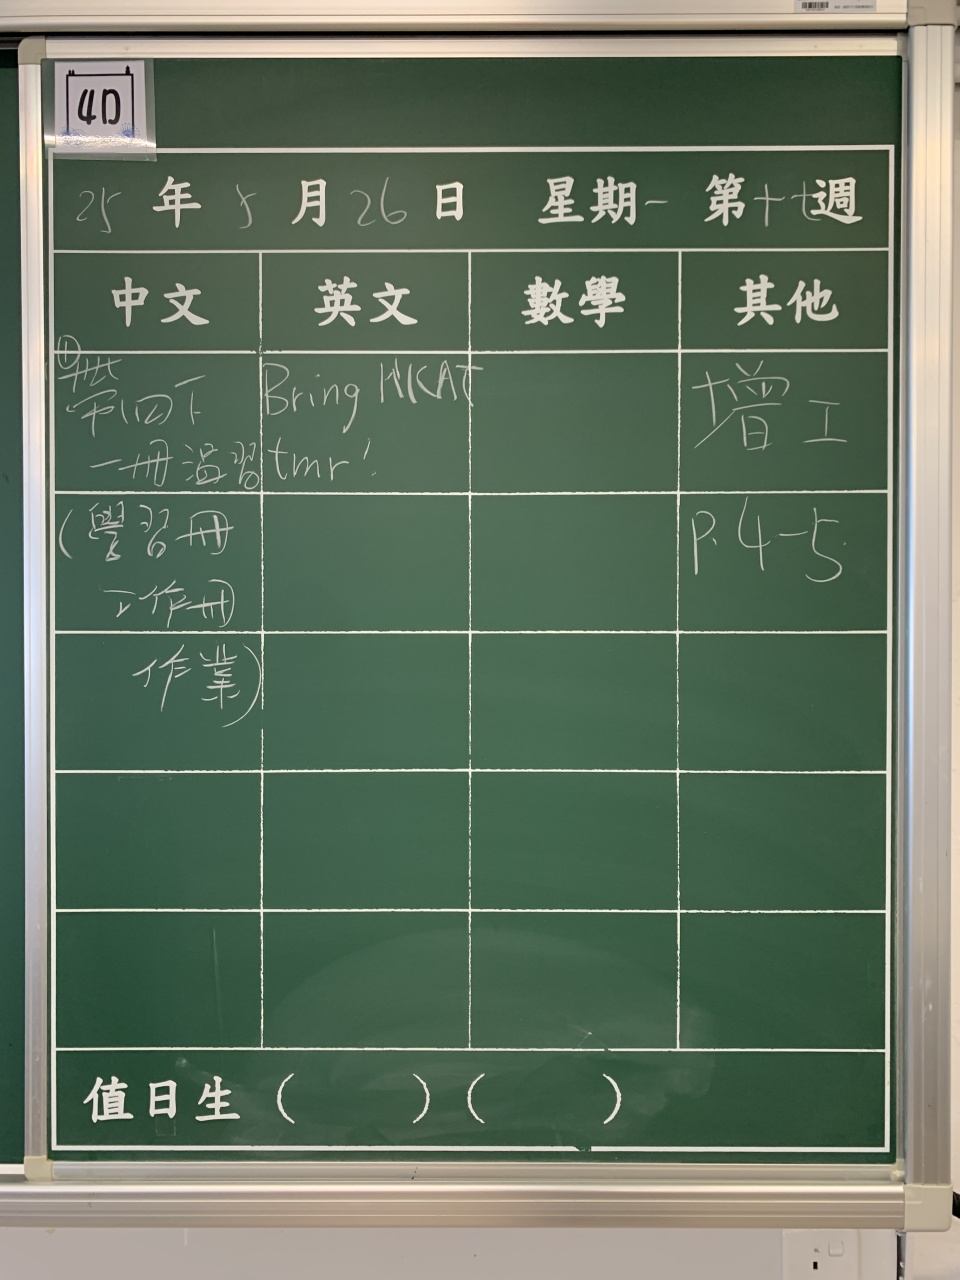 4D
25年5月26日 星期一 第十七週
中文 英文 數學 其他
①帶四下
一冊溫習
(學習冊
工作冊
作業)
Bring HKAT
tmr!
增工
P.4-5
值日生( )( )